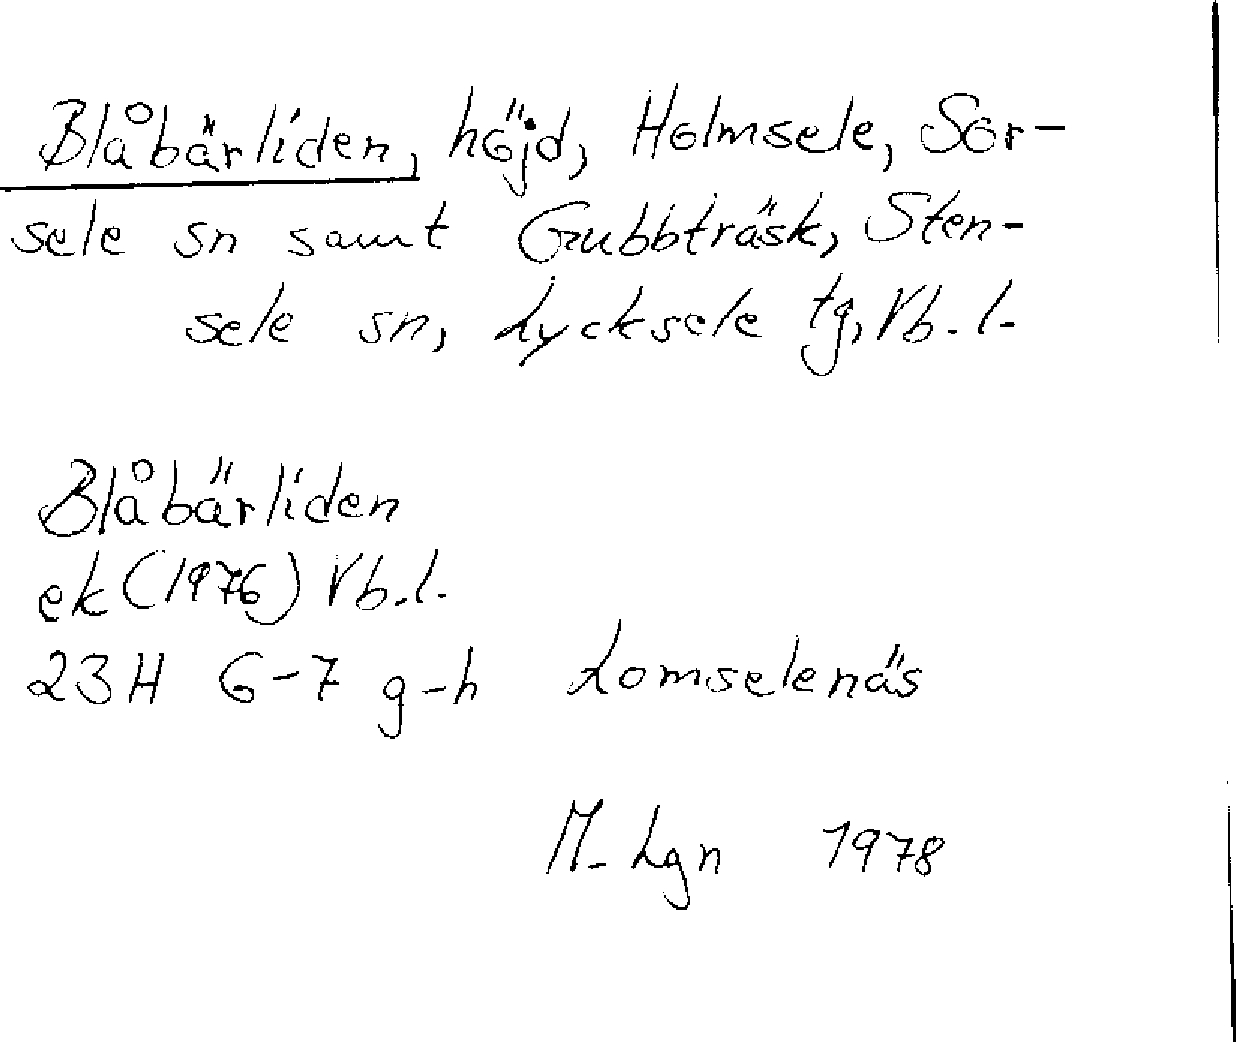 Blåbärliden, höjd, Holmsele, Sor-
sele sn samt Gubbträsk, Sten-
sele sn, Lycksele tg, Vb. l.
Blåbärliden
ek (1976) Vb. l.
23H 6-7 g-h Lomselenäs
M. Lgn 1978